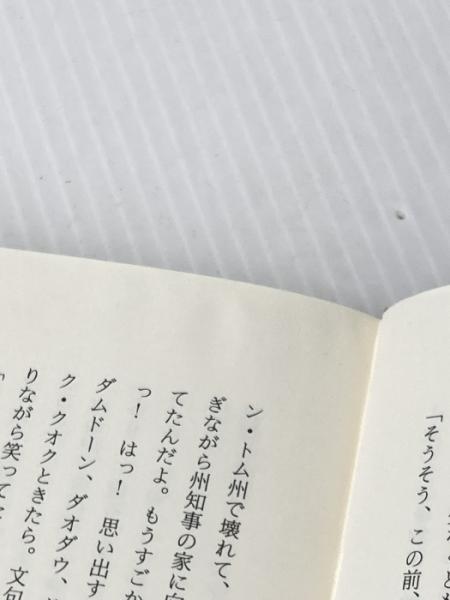 「そうそう、この前、
ン・トム州で壊れて、
ぎながら州知事の家に
てたんだよ。もうすごか
っ！　はっ！　思い出す
ダムドーン、ダオダウ、
ク・クオクときたら。文句
りながら笑って